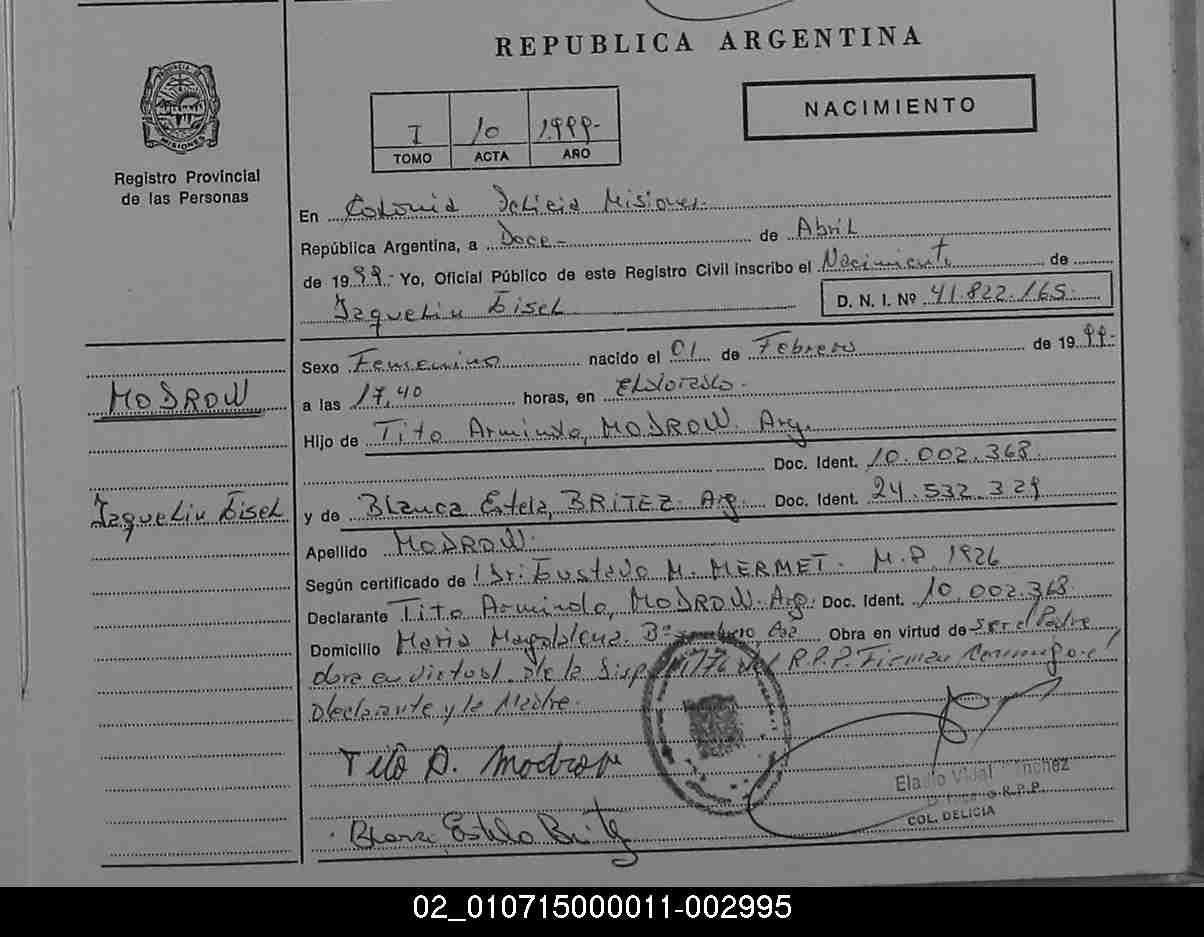 REPUBLICA ARGENTINA
NACIMIENTO
I 10 1999-
TOMO ACTA AÑO
PROVINCIA DE
MISIONES
Registro Provincial
de las Personas
En Colonia Delicia Misiones.
República Argentina, a Doce - de Abril
de 1999- Yo, Oficial Público de este Registro Civil inscribo el Nacimiento de
Jaquelin Gisel D. N. I. Nº 41.822.165.
Sexo Femenino nacido el 01 de Febrero de 1999-
MODROW
a las 17,40 horas, en Eldorado.
Hijo de Tito Armindo, MODROW. Arg.
Doc. Ident. 10.002.368.
Jaquelin Gisel
y de Blanca Estela, BRITEZ. Arg. Doc. Ident. 24.532.329
Apellido MODROW.
Según certificado de Dr. Gustavo M. MERMET. M.P. 1926
Declarante Tito Armindo, MODROW. Arg. Doc. Ident. 10.002.368
Domicilio Maria Magdalena. Obra en virtud de Ser el Padre
obra en virtud de la Disp. del R.P.P. Firman Conmigo el
Declarante y la Madre.
Tito A. Modrow
Blanca Estela Britez
Eladio Vidal
R.P.P.
COL. DELICIA
02_010715000011-002995